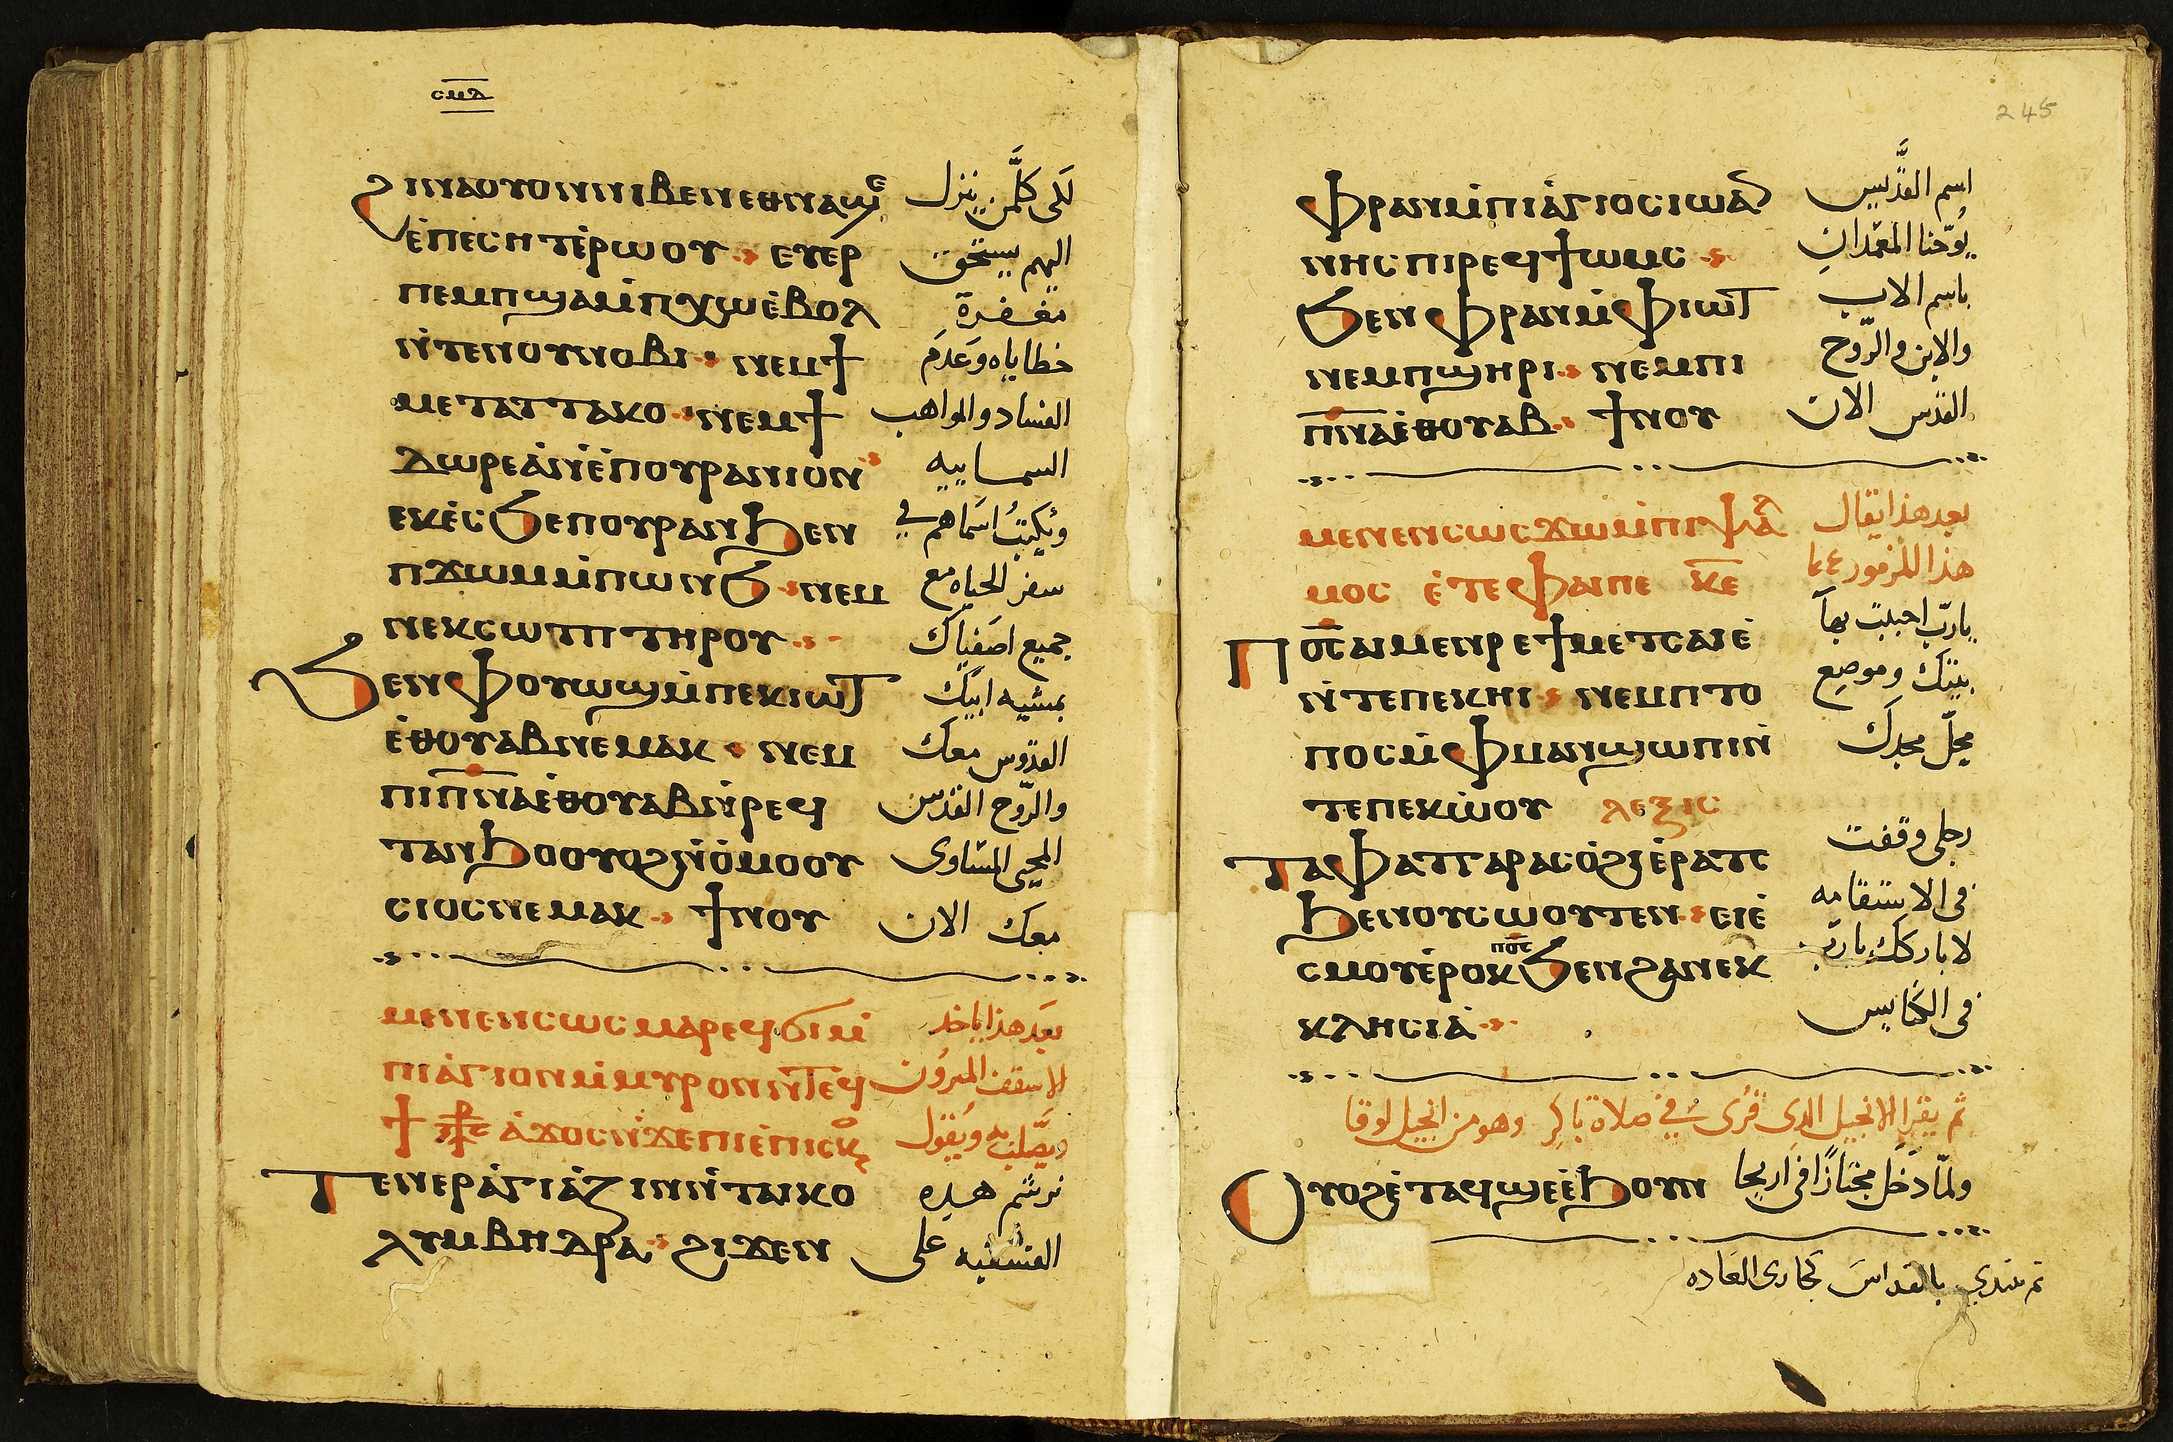 ⲥⲙⲇ
ϩⲓⲛⲁ ⲟⲩⲟⲛ ⲛⲓⲃⲉⲛ ⲉⲑⲛⲁϣⲉ لكى كلَّمن ينزل
ⲉ̀ⲡⲉⲥⲏⲧ ⲉ̀ⲣⲱⲟⲩ · ⲉⲩⲉⲣ اليهم يستحق
ⲡⲉⲙⲡϣⲁ ⲙ̀ⲡⲭⲱ ⲉ̀ⲃⲟⲗ مغفرة
ⲛ̀ⲧⲉ ⲛⲟⲩⲛⲟⲃⲓ · ⲛⲉⲙ ϯ خطاياه وعدم
ⲙⲉⲧⲁⲧⲧⲁⲕⲟ · ⲛⲉⲙ ϯ الفساد والمواهب
ⲇⲱⲣⲉⲁ̀ ⲛ̀ⲉ̀ⲡⲟⲩⲣⲁⲛⲓⲟⲛ السماييه
ⲉⲕⲉ̀ⲥϧⲉ ⲡⲟⲩⲣⲁⲛ ϧⲉⲛ ويُكتبُ اسماهم في
ⲡϫⲱⲙ ⲙ̀ⲡⲱⲛϧ · ⲛⲉⲙ سفر الحياه مع
ⲛⲉⲕⲥⲱⲧⲡ ⲧⲏⲣⲟⲩ · جميع اصفياك
ϧⲉⲛ ⲫⲟⲩⲱϣ ⲙ̀ⲡⲉⲕⲓⲱⲧ بمشيه ابيك
ⲉ̀ⲑⲟⲩⲁⲃ ⲛⲉⲙⲁⲕ · ⲛⲉⲙ القدوس معك
ⲡⲓⲡ̅ⲛ̅ⲁ̅ ⲉ̀ⲑⲟⲩⲁⲃ ⲛ̀ⲣⲉϥ والرّوح القدس
ⲧⲁⲛϧⲟ ⲟⲩⲟϩ ⲛ̀ⲟ̀ⲙⲟⲟⲩ المحيى المساوى
ⲥⲓⲟⲥ ⲛⲉⲙⲁⲕ · ϯⲛⲟⲩ معك الان
ⲙⲉⲛⲉⲛⲥⲱⲥ ⲙⲁⲣⲉϥϭⲓ ⲙ̀ بعد هذا ياخد
ⲡⲓⲁ̀ⲅⲓⲟⲛ ⲙ̀ⲙⲩⲣⲟⲛ ⲛ̀ⲧⲉϥ الاسقف الميرون
ϯ ⲁ̀ϫⲟⲥ ⲛ̀ϫⲉ ⲡⲓⲉ̀ⲡⲓⲥⲕⲟ ويصلب به ويقول
ⲧⲉⲛⲉⲣⲁ̀ⲅⲓⲁ̀ⲍⲓⲛ ⲛ̀ⲧⲁⲓⲕⲟ نرشم هذه
ⲗⲩⲙⲃⲏⲑⲣⲁ · ϩⲓϫⲉⲛ على
245
ⲫⲣⲁⲛ ⲙ̀ⲡⲓⲁ̀ⲅⲓⲟⲥ ⲓⲱⲁ اسم القدّيس
ⲛⲏⲥ ⲡⲓⲣⲉϥϯⲱⲙⲥ · يُوحّنا المعمدان
ϧⲉⲛ ⲫⲣⲁⲛ ⲙ̀ⲫⲓⲱⲧ باسم الاب
ⲛⲉⲙ ⲡϣⲏⲣⲓ · ⲛⲉⲙ ⲡⲓ والابن والرّوح
ⲡ̅ⲛ̅ⲁ̅ ⲉ̀ⲑⲟⲩⲁⲃ · ϯⲛⲟⲩ القدس الان
ⲙⲉⲛⲉⲛⲥⲱⲥ ϫⲱ ⲙ̀ⲡⲓⲯⲁⲗ بعد هذا يقال
ⲙⲟⲥ ⲉ̀ⲧⲉ ⲫⲁⲓ ⲡⲉ ⲕ̅ⲉ̅ هذا المزمور
ⲡⲟ̅ⲥ̅ ⲁⲓⲙⲉⲛⲣⲉ ϯⲙⲉⲧⲥⲁⲓⲉ̀ يا ربّ احببت بهآ
ⲛ̀ⲧⲉ ⲡⲉⲕⲏⲓ · ⲛⲉⲙ ⲡⲧⲟ بيتك وموضع
ⲡⲟⲥ ⲙ̀ⲫⲙⲁⲛϣⲱⲡⲓ ⲛ̀ محلّ مجدك
ⲧⲉ ⲡⲉⲕⲱ̀ⲟⲩ ⲗⲉⲝⲓⲥ
ⲧⲁⲫⲁⲧ ⲅⲁⲣ ⲁⲥⲟ̀ϩⲓ ⲉ̀ⲣⲁⲧⲥ رجلى وقفت
ϧⲉⲛ ⲟⲩⲥⲱⲟⲩⲧⲉⲛ · ⲉⲓⲉ̀ فى الاستقامه
ⲥⲙⲟⲩ ⲉ̀ⲣⲟⲕ ⲡⲟ̅ⲥ̅ ϧⲉⲛ ϩⲁⲛⲉⲕ لاباركك يا ربّ
ⲕⲗⲏⲥⲓⲁ̀ · فى الكنايس
ثم يقرا الانجيل الدى قرى في صلاة باكر وهو من انجيل لوقا
ⲟⲩⲟϩ ⲉ̀ⲧⲁϥϣⲉ ⲉ̀ϧⲟⲩⲛ ولمّا دخل مجتازًا فى اريحا
ثم يبتدي بالقداس كجارى العاده